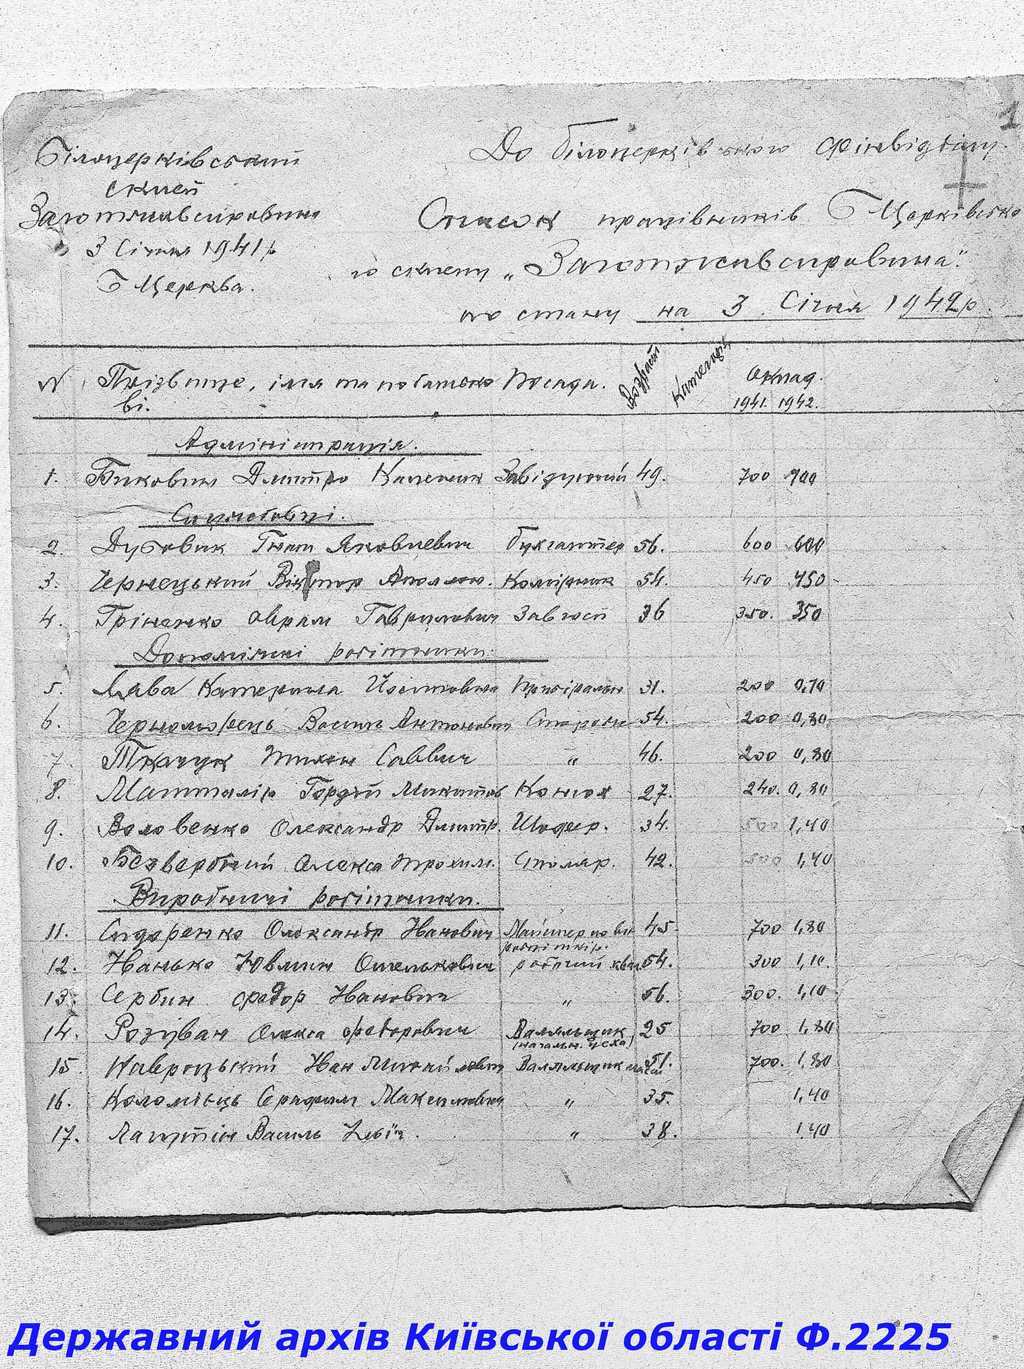 1
Білоцерківський
склеп
Заготживсировина
3 Січня 1941 р
Б Церква.
До білоцерківського фінвідділу.
Список працівників Б Церківсько
го склепу „Заготживсировина".
по стану на 3 Січня 1942 р.
N Прізвище, ім'я та по батькові. Посада. Возраст Категорія Оклад.
1941. 1942.
Адміністрація.
1. Биковин Дмитро Завідуючий 49. 700 700
Службовці.
2. Дубовик Гнат Яковлевич бухгалтер 56. 600 600
3. Чернецький Віктор Аполлон. Комірник 54. 450 450
4. Гріненко Аврам Гаврилович Завгосп 36 350. 350
Допоміжні робітники.
5. Катерина Прибіральн 31. 200 0,70
6. Черноморець Василь Антонович Сторож 54. 200 0,80
7. Ткачук Тихон Саввич " 46. 200 0,80
8. Машталір Гордій Микитов Конюх 27. 240. 0,80
9. Воловенко Олександр Дмитр. Шофер. 34. 500 1,40
10. Безверхний Олекса Трохим. Столяр. 42. 500 1,40
Виробничі робітники.
11. Сидоренко Олександр Иванович Майстер по 45 700 1,80
12. Иванько Омелькович робочий 54. 300 1,10
13. Сербин Федор Иванович " 56. 300. 1,10
14. Розгван Олекса Федорович Валяльщик 25 700 1,80
(начальн. цеха)
15. Навроцький Иван Михайлович Валяльщик 51. 700. 1,80
16. Коломієць Серафим Максимович " 35. 1,40
17. Лагутін Василь " 38. 1,40
Державний архів Київської області Ф.2225